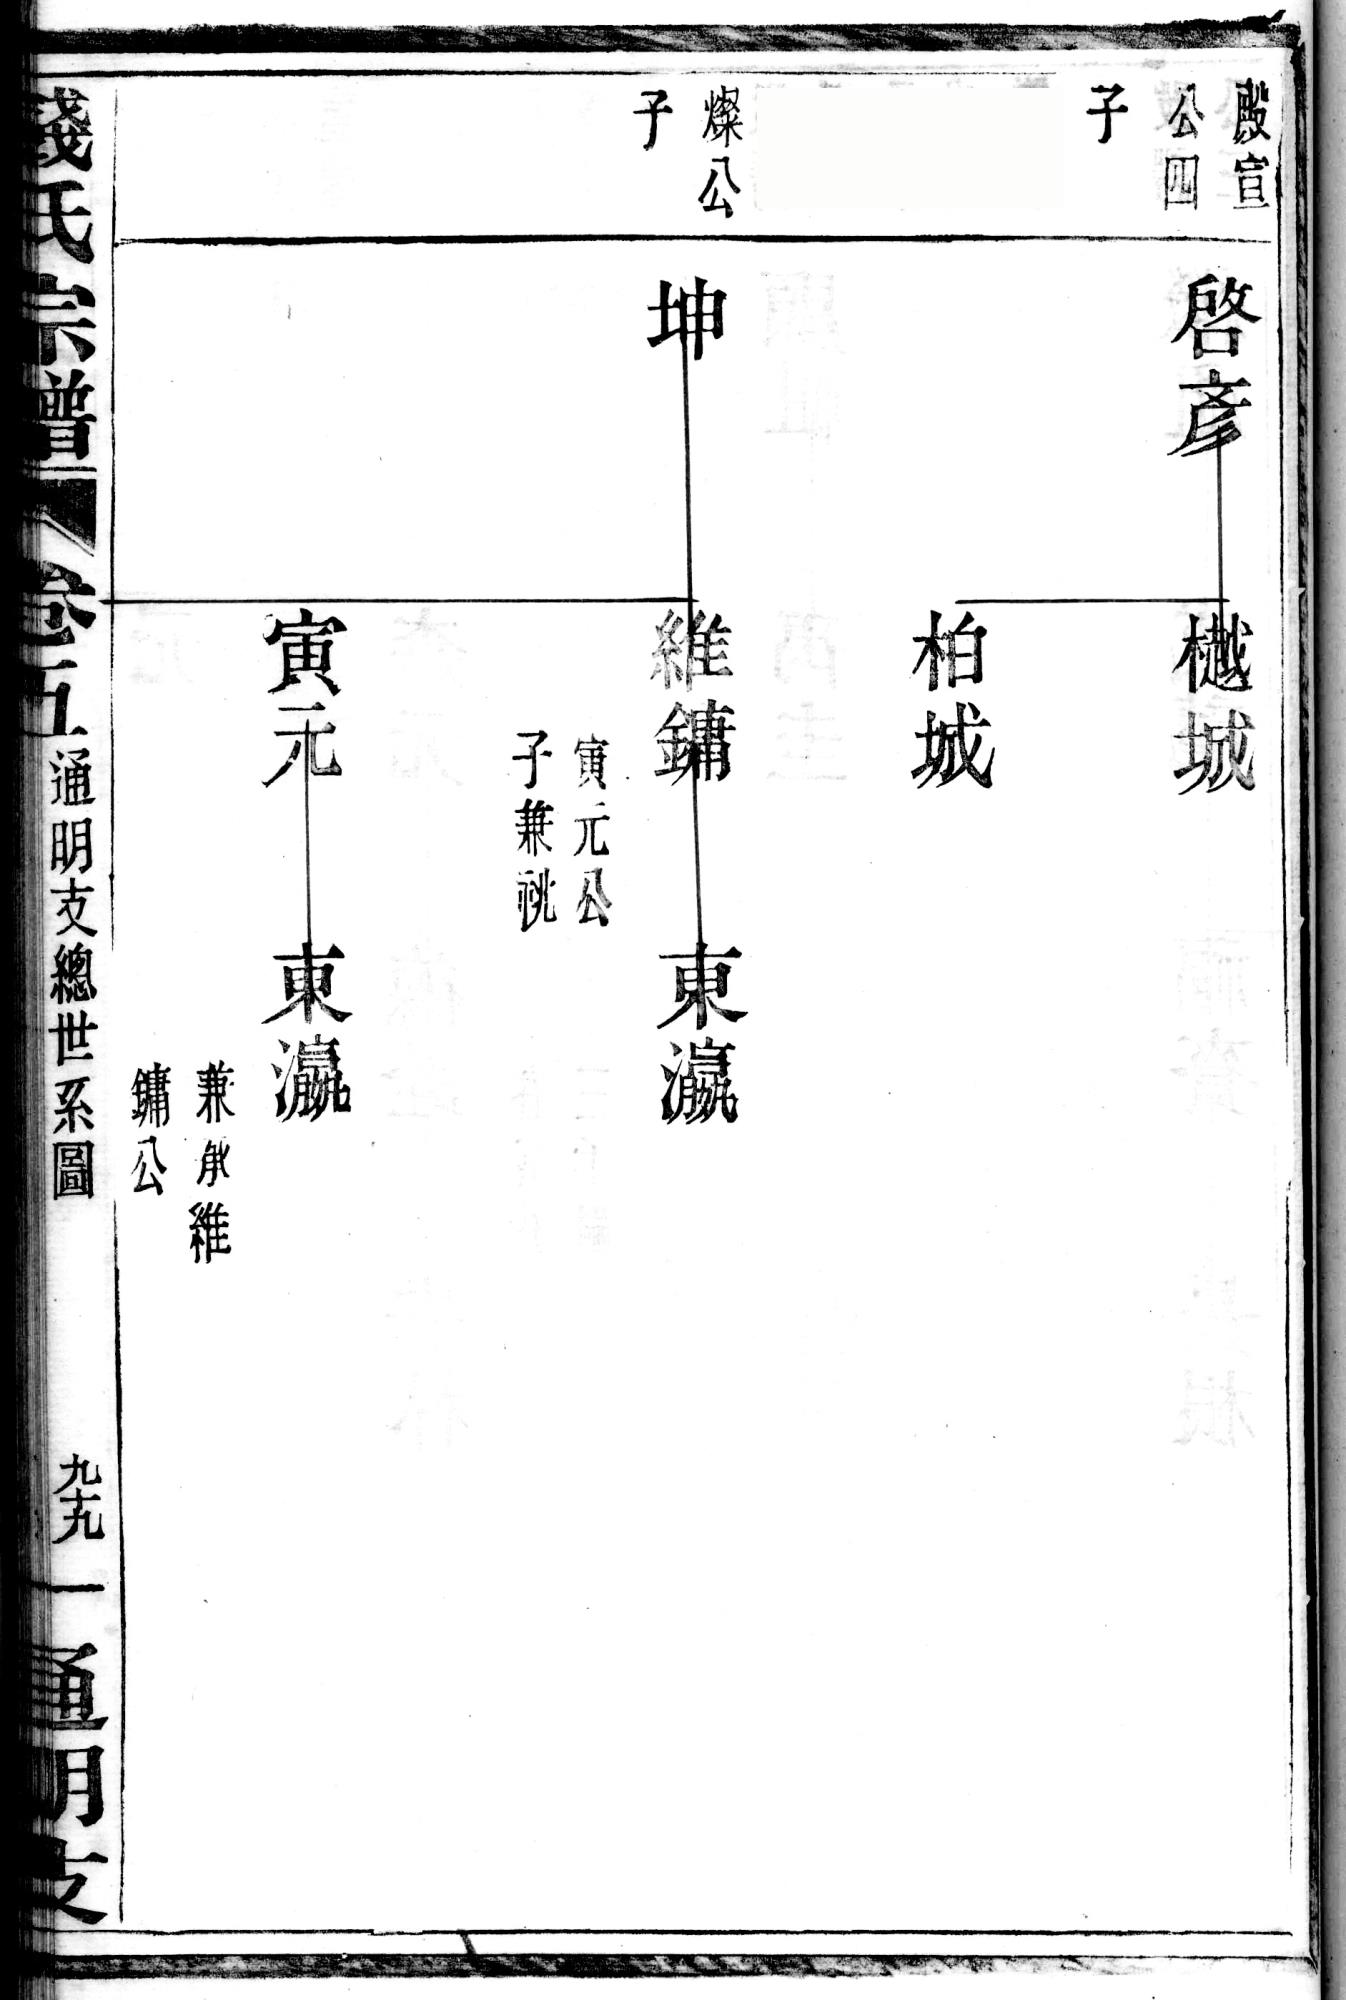 殿宣
公四
子
燦公
子
啓彥
坤
樾城
柏城
維鏞
寅元公
子兼祧
寅元
東瀛
東瀛
兼承維
鏞公
錢氏宗譜
卷五
通明支總世系圖
九十九
一
通明支